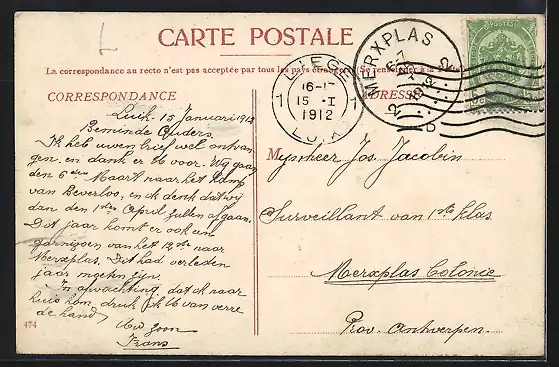 CARTE POSTALE
La correspondance au recto n'est pas acceptée par tous les pays étrangers. Se renseigner à la Poste
CORRESPONDANCE
ADRESSE
LIEGE
16-17
15 I
1912
LUIK
MERXPLAS
6-7
1912
POSTES
Luik 15 Januari 1912
Beminde Ouders.
Ik heb uwen brief wel ontvan-
gen, en dank er U voor. Wij gaan
den 6den Maart naar het kamp
van Beverloo, en ik denk dat wij
dan den 1sten April zullen afgaan.
Dit jaar komt er ook een
garnizoen van het 12de naar
Merxplas. Dit had verleden
jaar moeten zijn.
In afwachting dat ik naar
huis kom, druk ik U van verre
de hand
Uw zoon
Frans
474
Mynheer Jos. Jacobin
Surveillant van 1ste klas
Merxplas Colonie
Prov. Antwerpen.